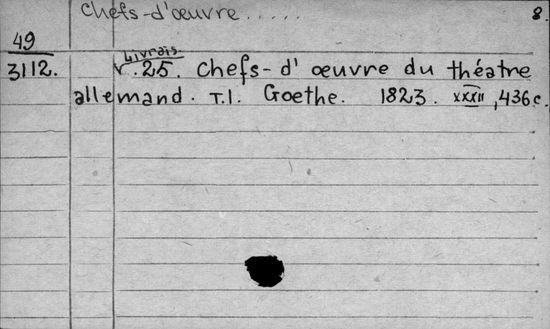 Chefs-d'œuvre ..... 8.
49
Livrais.
3112. v. 25. Chefs-d'œuvre du théatre
allemand. T.1. Goethe. 1823. XXXII, 436 c.